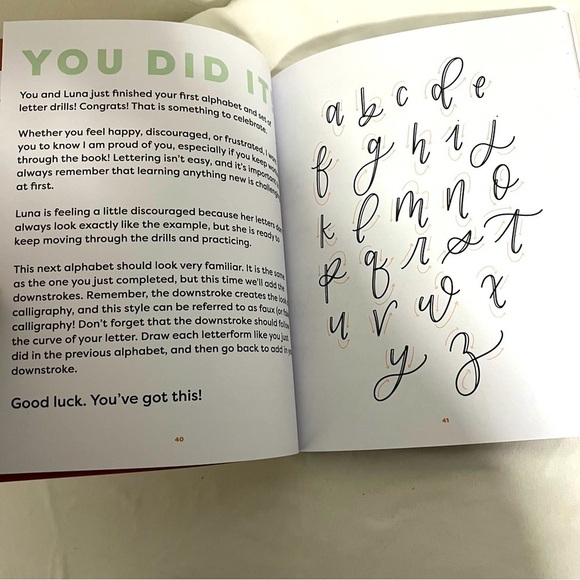 YOU DID IT
You and Luna just finished your first alphabet and set of
letter drills! Congrats! That is something to celebrate.
Whether you feel happy, discouraged, or frustrated, I
you to know I am proud of you, especially if you keep
through the book! Lettering isn't easy, and it's important
always remember that learning anything new is challenging
at first.
Luna is feeling a little discouraged because her letters don't
always look exactly like the example, but she is ready to
keep moving through the drills and practicing.
This next alphabet should look very familiar. It is the same
as the one you just completed, but this time we'll add the
downstrokes. Remember, the downstroke creates the look
calligraphy, and this style can be referred to as faux (or
calligraphy! Don't forget that the downstroke should follow
the curve of your letter. Draw each letterform like you just
did in the previous alphabet, and then go back to add in
downstroke.
Good luck. You've got this!
40
a b c d e
f g h i j
k l m n o
p q r s t
u v w x
y z
41